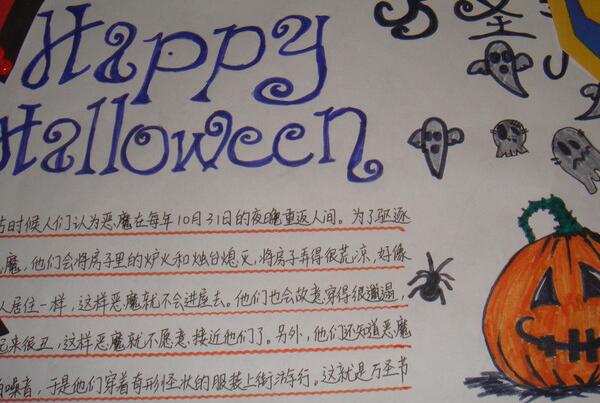 Happy
圣
Halloween
古时候人们认为恶魔在每年10月31日的夜晚重返人间。为了驱逐
恶魔，他们会将房子里的炉火和烛台熄灭，将房子弄得很荒凉，好像
人居住一样，这样恶魔就不会进屋去。他们也会故意穿得很邋遢，
起来很丑，这样恶魔就不愿意接近他们了。另外，他们还知道恶魔
噪音，于是他们穿着奇形怪状的服装上街游行。这就是万圣节